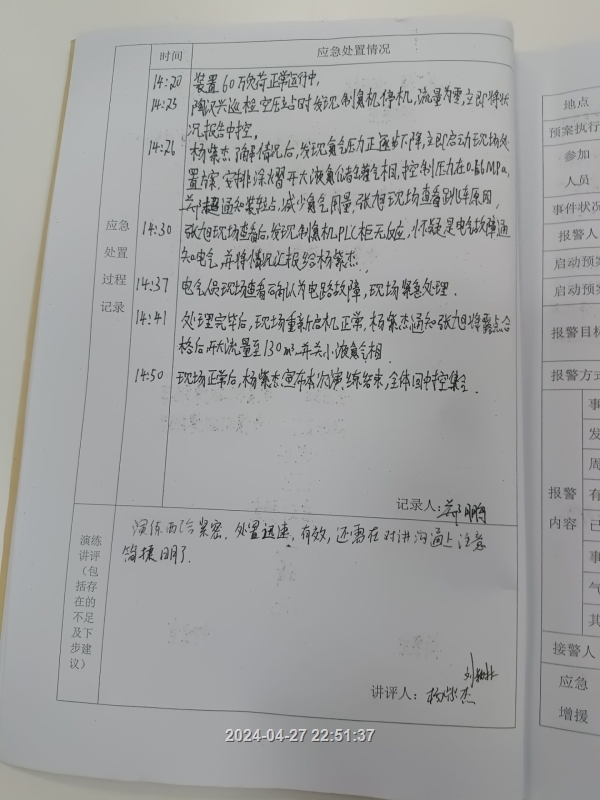 时间 应急处置情况
14:20 装置60万负荷正常运行中,
14:23 陶汉兴巡检空压站时发现制氮机停机,流量为零,立即将状
况报告中控。
14:26 杨紫杰了解情况后,发现氮气压力正逐步下降,立即启动现场处
置方案,安排涂熠开大液氮化去氮气相,控制压力在0.66MPa,
超通知装轻点,减少氮气用量,张旭现场查看跳车原因,
14:30 张旭现场查看后,发现制氮机PLC柜无反应,怀疑是电气故障通
知电气,并将情况汇报给杨紫杰.
14:37 电气人员现场查看确认为电路故障,现场紧急处理.
14:41 处理完毕后,现场重新启机正常,杨紫杰通知张旭将露点合
格后开大流量至130m³.并关小液氮气相.
14:50 现场正常后,杨紫杰宣布本次演练结束,全体回中控集合.
应急
处置
过程
记录
记录人:
演练
讲评
(包
括存
在的
不足
及下
步建
议)
演练配合紧密.处置迅速,有效,还需在对讲沟通上注意
简捷明了.
讲评人:杨紫杰
2024-04-27 22:51:37
地点
预案执行
参加
人员
事件状况
报警人
启动预案
启动预案
报警目标
报警方式
报警
内容
事
发
周
有
已
事
气
其
接警人
应急
增援